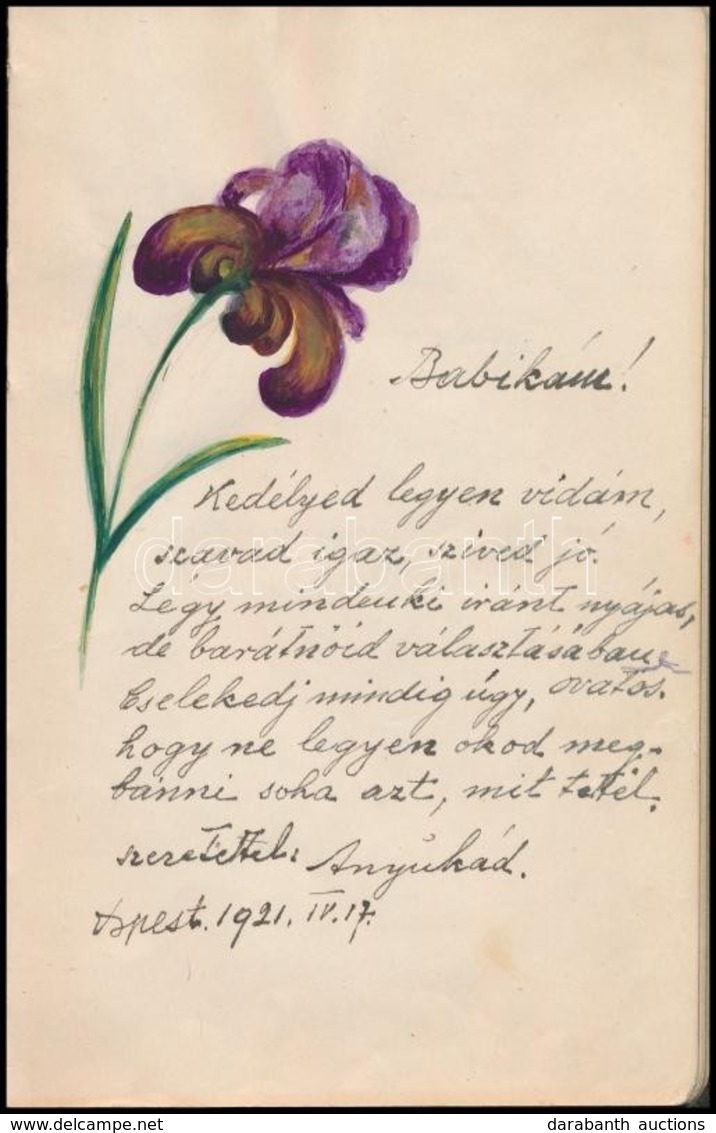 Babikám!
Kedélyed legyen vidám,
szavad igaz, szived jó.
Légy mindenki iránt nyájas,
de barátnőid választásában
ovatos.
Cselekedj mindig úgy,
hogy ne legyen okod meg-
bánni soha azt, mit tettél.
szeretettel: Anyukád.
Bpest. 1921. IV. 17.
darabanth
www.delcampe.net
darabanth auctions